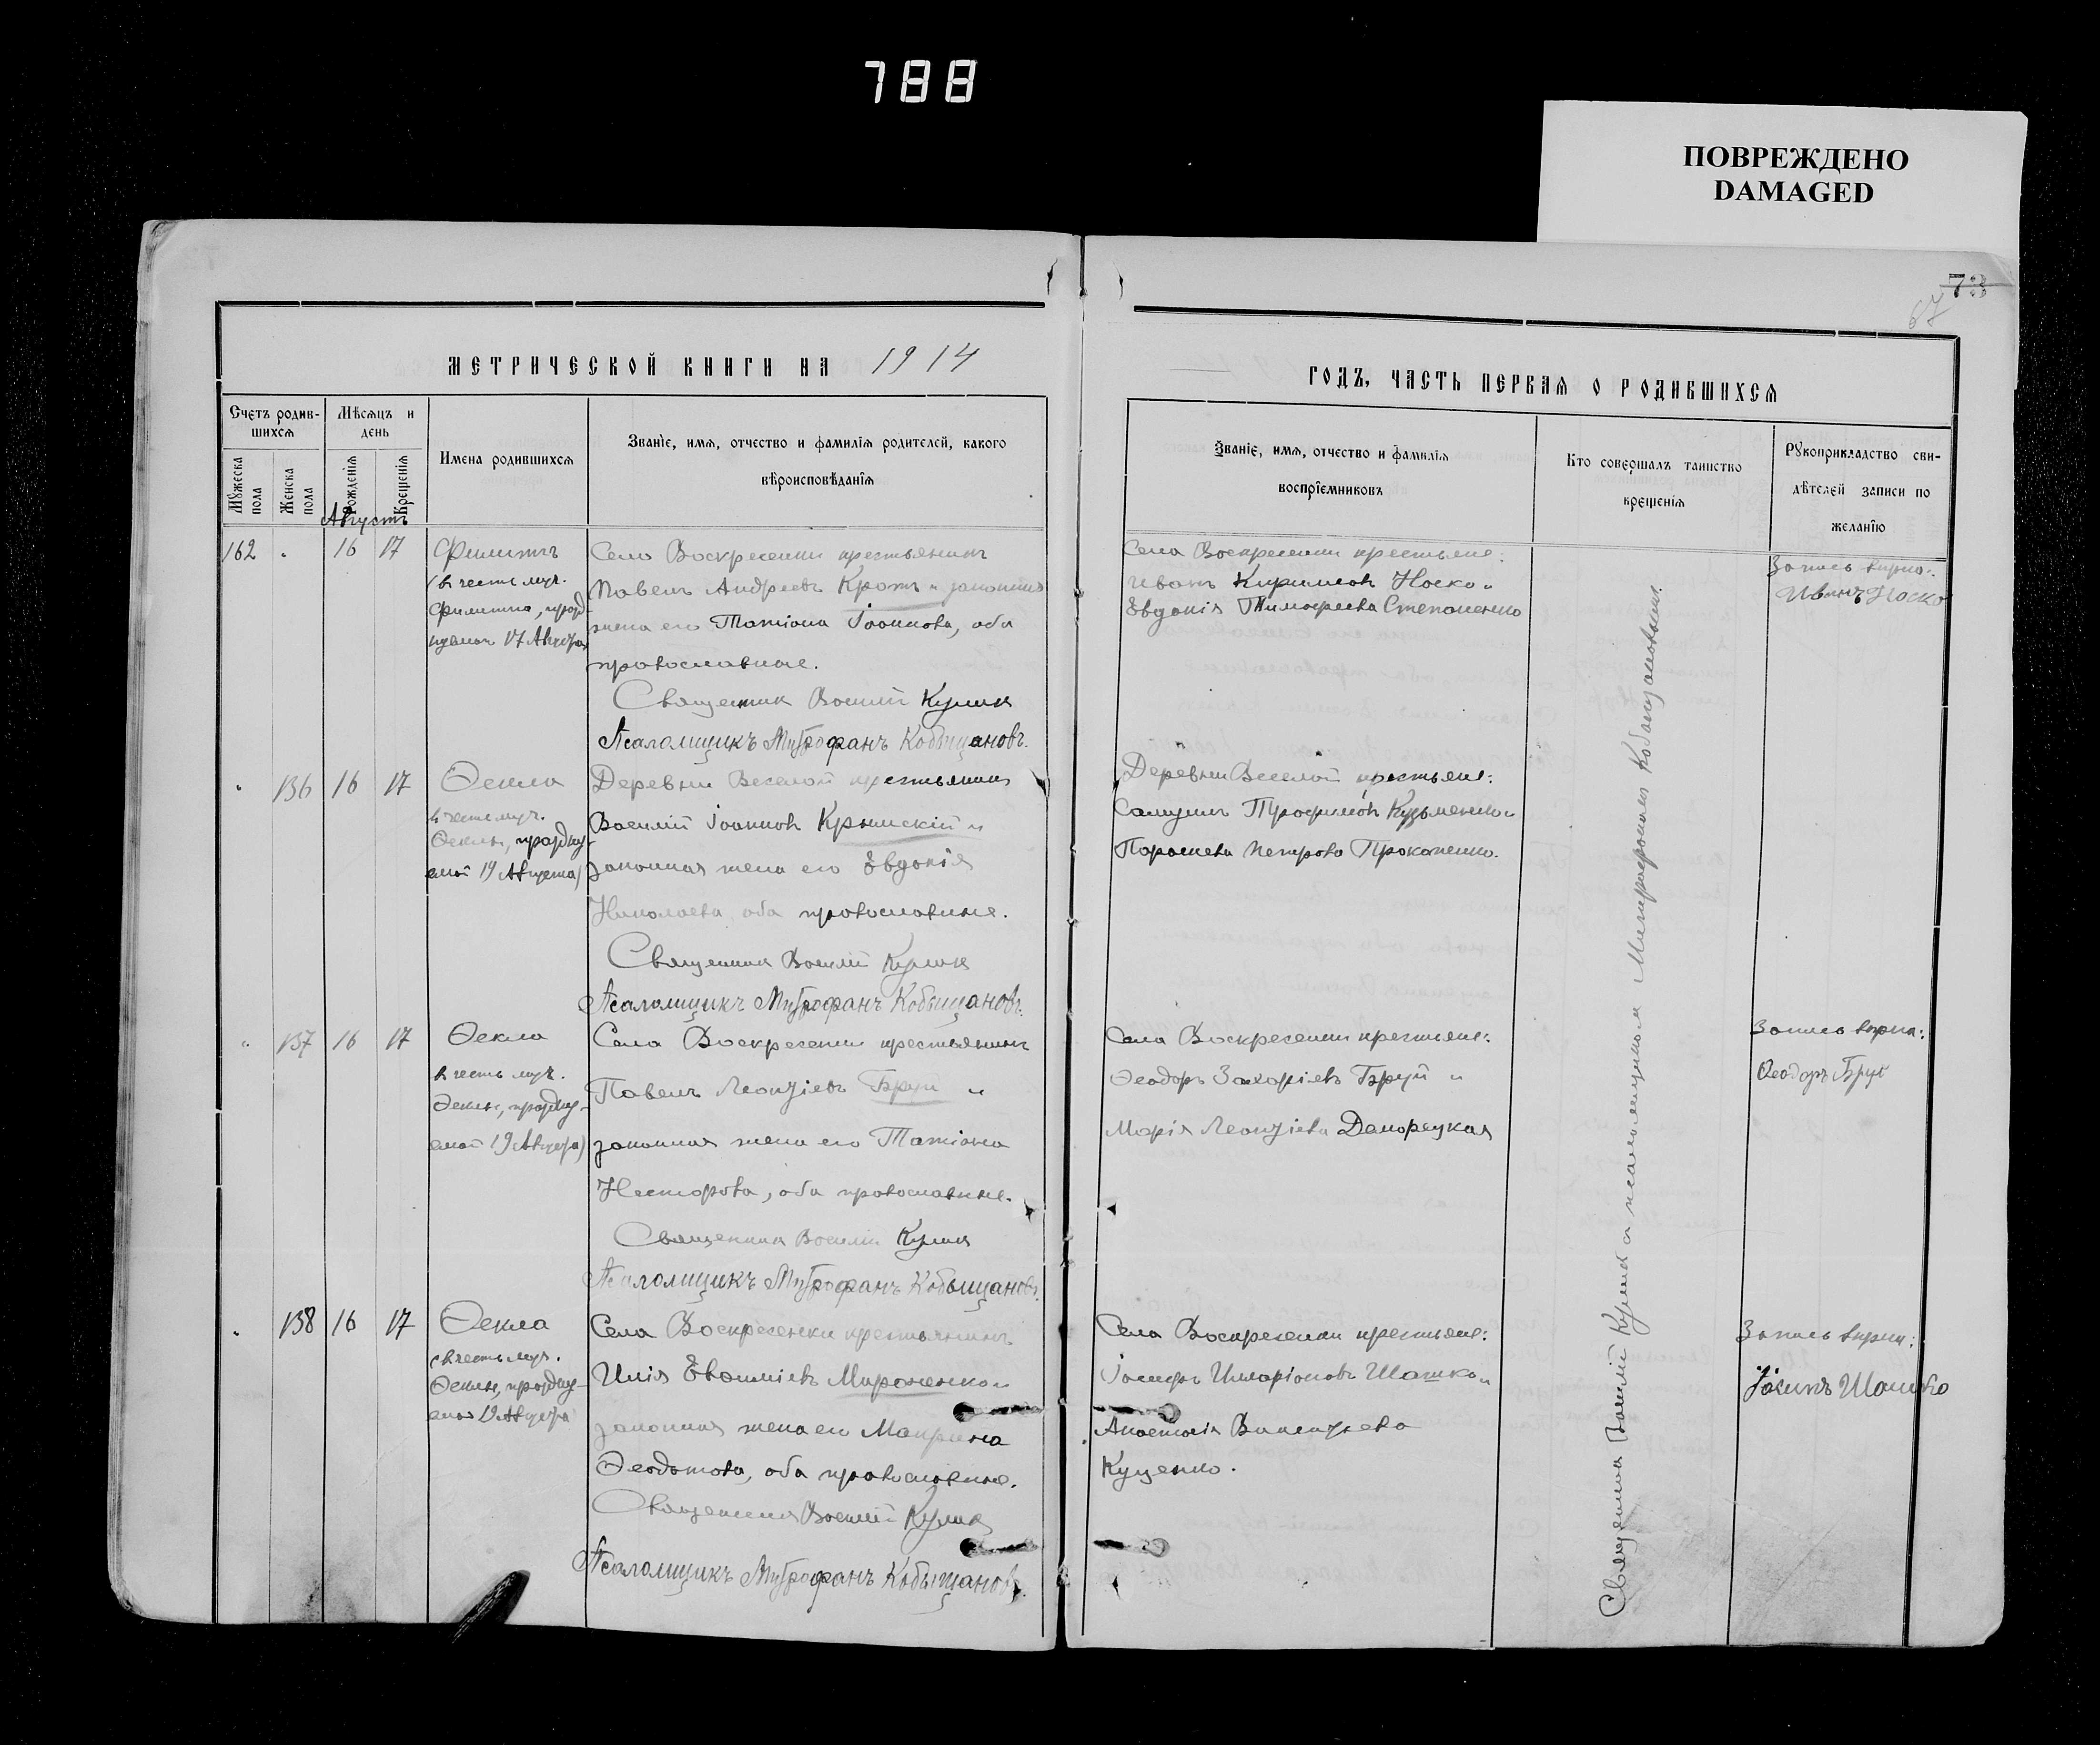 788
ПОВРЕЖДЕНО
DAMAGED
73
67
МЕТРИЧЕСКОЙ КНИГИ НА 1914
ГОДЪ, ЧАСТЬ ПЕРВАЯ О РОДИВШИХСЯ
Счетъ родив-
шихся
Мѣсяцъ и
день
Мужеска пола
Женска пола
Рожденія
Крещенія
Имена родившихся
Званіе, имя, отчество и фамилія родителей, какого
вѣроисповѣданія
Званіе, имя, отчество и фамилія
воспріемниковъ
Кто совершалъ таинство
крещенія
Рукоприкладство сви-
дѣтелей записи по
желанію
Августъ
162 16 17 Филиппъ
(въ честь муч.
17 Августа
Села Воскресенки крестьянинъ
Павелъ Андреевъ Кротъ и законная
жена его Татіана Іоаннова, оба
православные.
Священникъ Василій Куликъ
Псаломщикъ Митрофанъ Кобыщановъ.
Села Воскресенки крестьяне:
Иванъ Кирилловъ Носко и
Евдокія Тимофеева Степаненко
Запись вѣрна:
Иванъ Носко
136 16 17 Ѳекла
въ честь муч.
Ѳеклы, праздну-
емой 19 Августа)
Деревни Веселой крестьянинъ
Василій Іоанновъ Крымскій и
законная жена его Евдокія
Николаева, оба православные.
Священникъ Василій Куликъ
Псаломщикъ Митрофанъ Кобыщановъ.
Деревни Веселой крестьяне:
Самуилъ Трофимовъ Кузьменко и
Параскева Петрова Прокопенко.
137 16 17 Ѳекла
въ честь муч.
Ѳеклы, праздну-
емой 19 Августа)
Села Воскресенки крестьянинъ
Павелъ Леонтіевъ Бруй и
законная жена его Татіана
Несторова, оба православные.
Священникъ Василій Куликъ
Псаломщикъ Митрофанъ Кобыщановъ.
Села Воскресенки крестьяне:
Ѳеодоръ Захаріевъ Бруй и
Марія Леонтіева Данорецкая
Запись вѣрна:
Ѳеодоръ Бруй
138 16 17 Ѳекла
(въ честь муч.
Ѳеклы, праздну-
емой 19 Августа
Села Воскресенки крестьянинъ
Илія Евѳиміевъ Мироненко и
законная жена его Макрина
Ѳеодотова, оба православные.
Священникъ Василій Куликъ
Псаломщикъ Митрофанъ Кобыщановъ.
Села Воскресенки крестьяне:
Іосифъ Иларіоновъ Шашко и
Анастасія Викентьева
Куценко.
Запись вѣрна:
Іосипъ Шашко
Священникъ Василій Куликъ съ псаломщикомъ Митрофаномъ Кобыщановымъ.